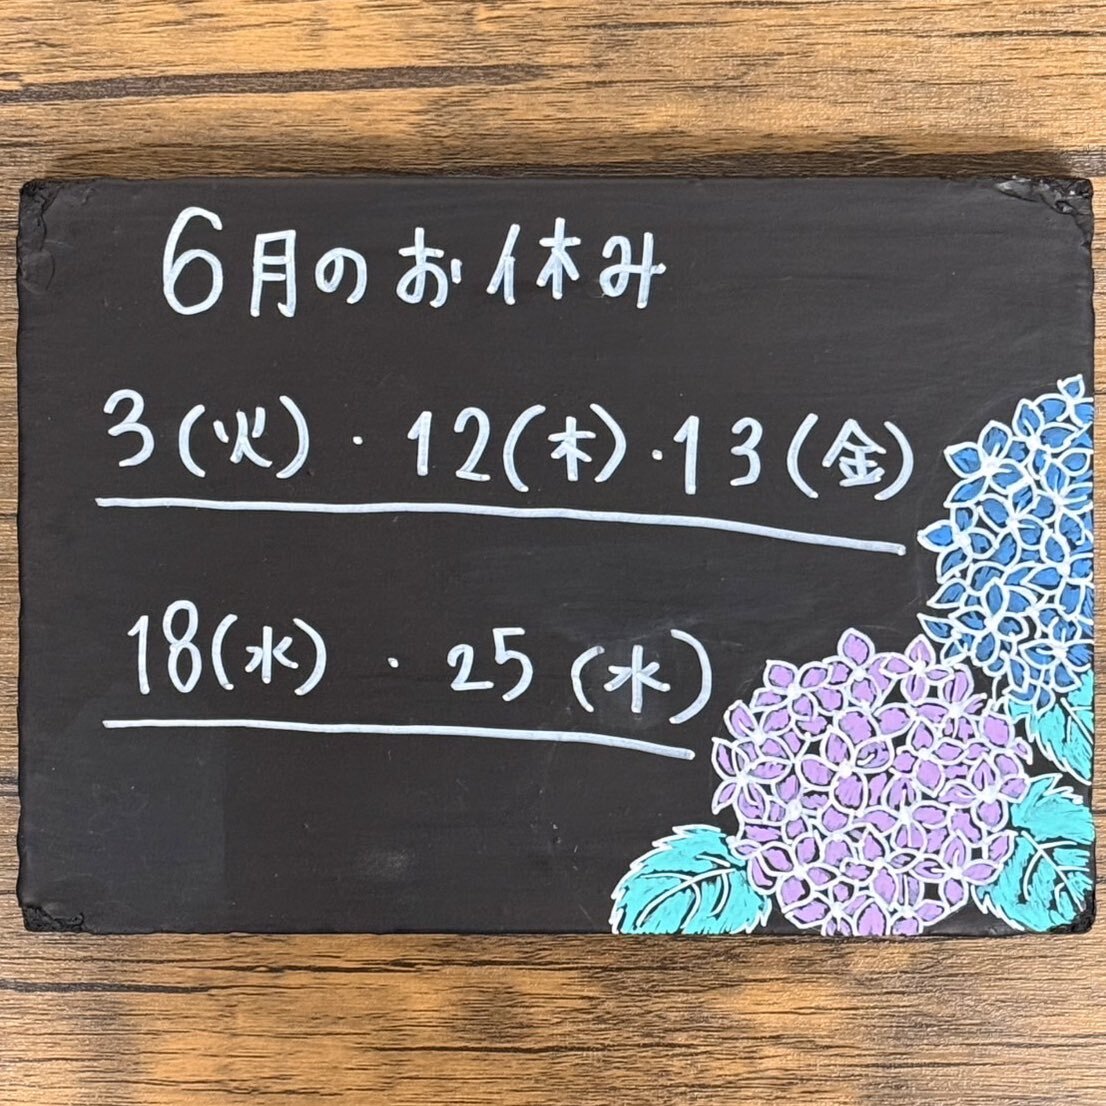 6月のお休み
3(火)・12(木)・13(金)
18(水)・25(水)